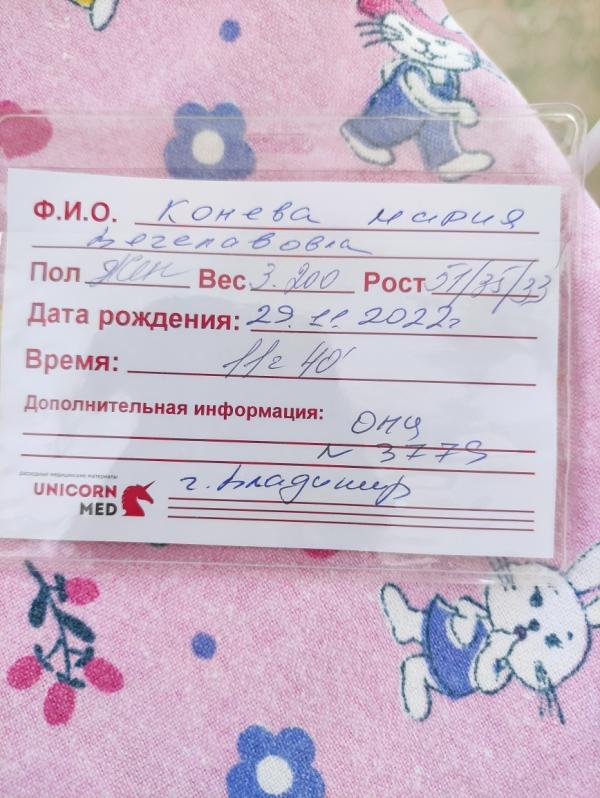 Ф.И.О. Конева Мария
Вячеславовна
Пол Жен Вес 3.200 Рост 51/35/33
Дата рождения: 29.11.2022г
Время: 11ч 40'
Дополнительная информация:
ОНЦ
N 3779
расходные медицинские материалы
UNICORN
MED
г. Владимир